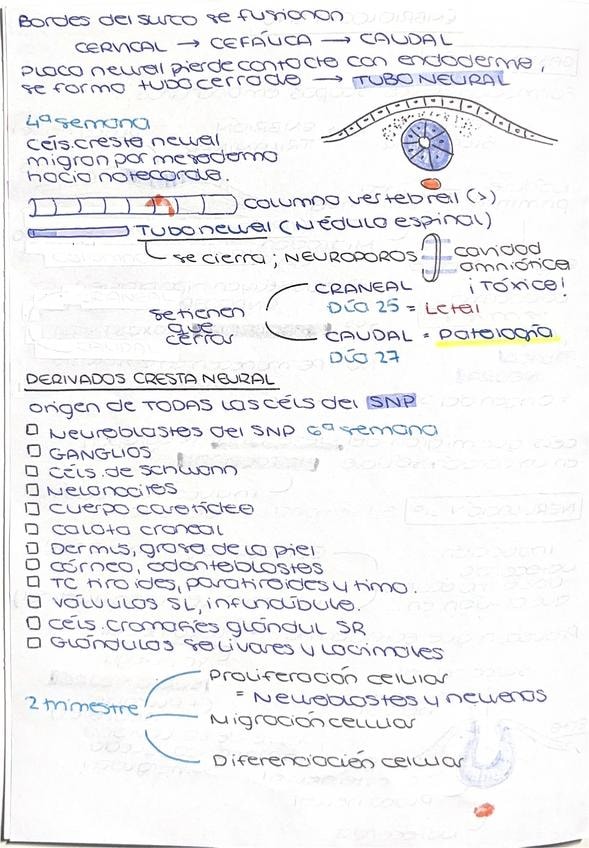 Bordes del surco se fusionan
CERVICAL → CEFÁLICA → CAUDAL
Placa neural pierde contacto con endodermo,
se forma tubo cerrado → TUBO NEURAL
4ª semana
céls. cresta neural
migran por mesodermo
hacia notocorda.
columna vertebral (>)
TUBO neural (Médula espinal)
se cierra; NEUROPOROS
cavidad
amniótica
¡Tóxico!
se tienen
que
cerrar
CRANEAL
Día 25 = Letal
CAUDAL = Patología
Día 27
DERIVADOS CRESTA NEURAL
origen de TODAS las céls del SNP
□ Neuroblastos del SNP 6ª semana
□ GANGLIOS
□ Céls. de Schwann
□ Melanocitos
□ Cuerpo carotídeo
□ Calota craneal
□ Dermis, grasa de la piel
□ Córnea, odontoblastos
□ TC tiroides, paratiroides y timo.
□ Válvulas SL, infundíbulo.
□ Céls. cromafies glándul SR
□ Glándulas salivares y lacrimales
2 trimestre
Proliferación celular
= Neuroblastos y neuronas
Migración celular
Diferenciación celular